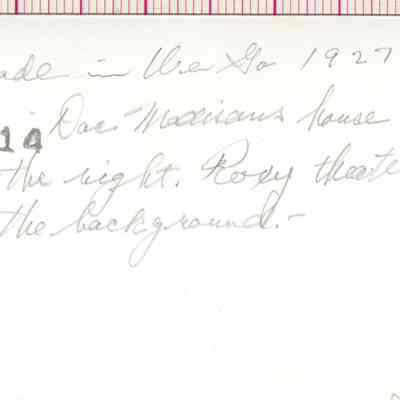 ade in the Ga 1927
14 Doc. house
the right. Roxy theate
the background.-